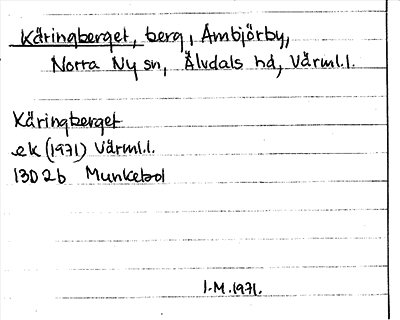 Käringberget, berg, Ambjörby,
Norra Ny sn, Älvdals hd, Värml.l.
Käringberget
ek (1971) Värml.l.
13D 2b Munkebol
I.M.1971.